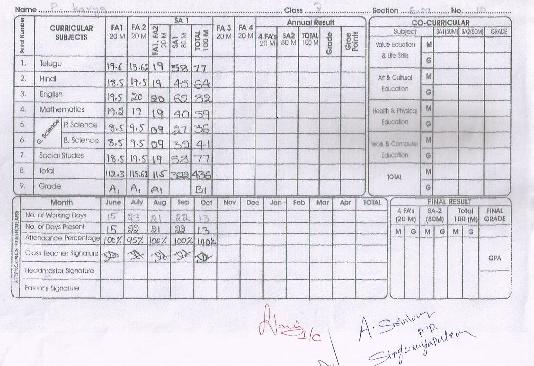 Name Class Section No.
Serial Number CURRICULAR SUBJECTS FA1 20 M FA 2 20 M SA 1 FA1, FA2 20 M SA1 80 M TOTAL 100 M FA 3 20 M FA 4 20 M Annual Result 4 FA's 20 M SA2 80 M TOTAL 100 M Grade Grade Points
1. Telugu 19.6 19.62 19 58 77
2. Hindi 18.5 19.5 19 45 64
3. English 19.5 20 20 62 82
4. Mathematics 19.2 19 19 40 59
G. Science
5. P. Science 8.5 9.5 09 27 36
6. B. Science 8.5 9.5 09 32 41
7. Social Studies 18.5 19.5 19 58 77
8. Total 112.3 115.62 115 436
9. Grade A1 A1 A1 B1
CO-CURRICULAR
Subject SA1(50M) SA2(50M) GRADE
Value Education & Life Skills M G
Art & Cultural Education M G
Health & Physical Education M G
Work & Computer Education M G
TOTAL M G
Month June July Aug Sep Oct Nov Dec Jan Feb Mar Apr TOTAL
No. of Working Days 15 23 21 22 13
No. of Days Present 15 22 21 22 13
Attendance Percentage 100% 95% 100% 100% 100%
Class Teacher Signature
Headmaster Signature
Parent's Signature
FINAL RESULT
4 FA's (20 M) SA-2 (80M) Total 100 (M) FINAL GRADE
M G M G M G
GPA